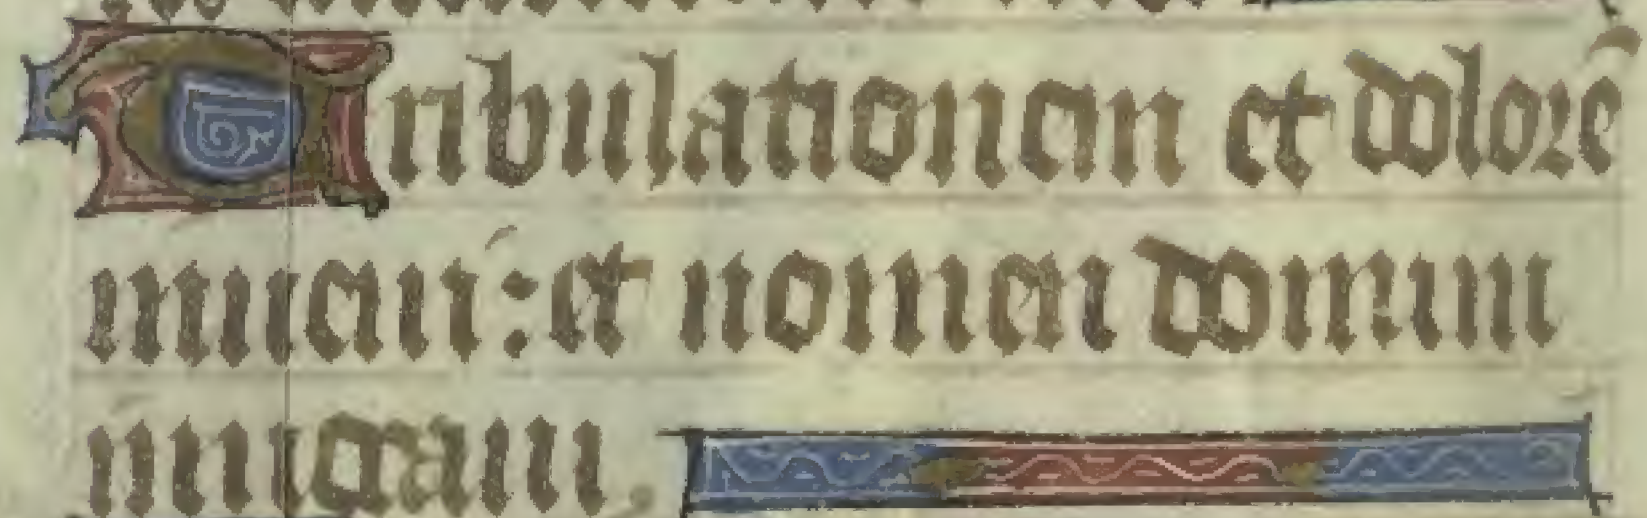 Tribulationem et dolorē
inueni: et nomen domini
inuocaui.